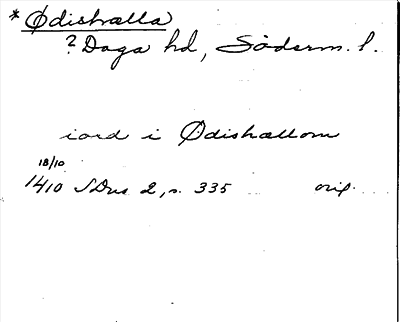 *Ødishælla
? Daga hd, Söderm. l.
iord i Ødishællom
18/10
1410 SDns 2, s. 335 orig.